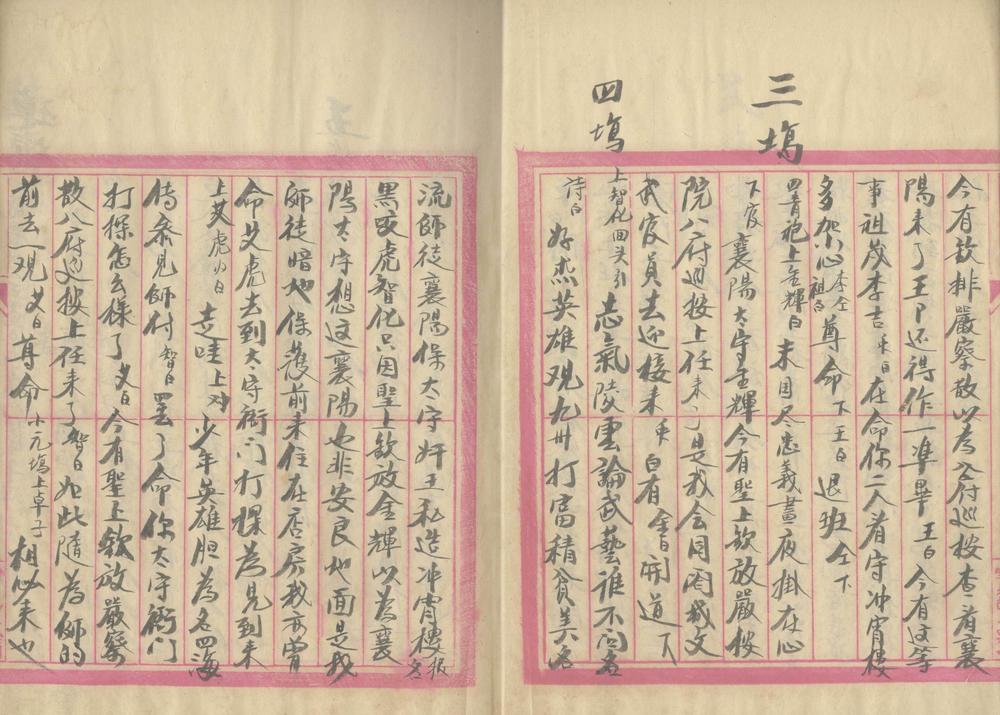 今有欽排嚴察散以為八府巡按查看襄
陽來了王戶还得作一準畢 王白 今有这等
事祖茂李吉 禾白 在命你二人看守冲宵楼
多加小心 李全 祖白 尊命 下 王白 退班 仝下
三塲
四青袍上金輝白 未因尽忠義晝夜掛在心
下官襄陽太守金輝今有聖上欽放嚴按
院八府巡按上任来了是我会同閤城文
武官員去迎接来 禾白有 金白 開道 下
四塲
上智化回头引 志氣陵雲論武藝誰不闻名
詩白 好杰英雄观九州打富積貧美名
流師徒襄陽保太守奸王私造冲宵樓 报名
黑妖虎智化只因聖上欽放金輝以為襄
陽太守想这襄陽也非安良地面是我
師徒暗地保護前来住在店房我不曾
命艾虎去到太守衙门打探為見到来
上艾虎小白 走哇 上对 少年英雄胆為名四海
待参見師付 智白 罢了命你太守衙门
打探怎么樣了 艾白 今有聖上欽放嚴察
散八府巡按上任来了 智白 如此隨為師的
前去一观 艾白 尊命 小元塲上卓子 相必来也